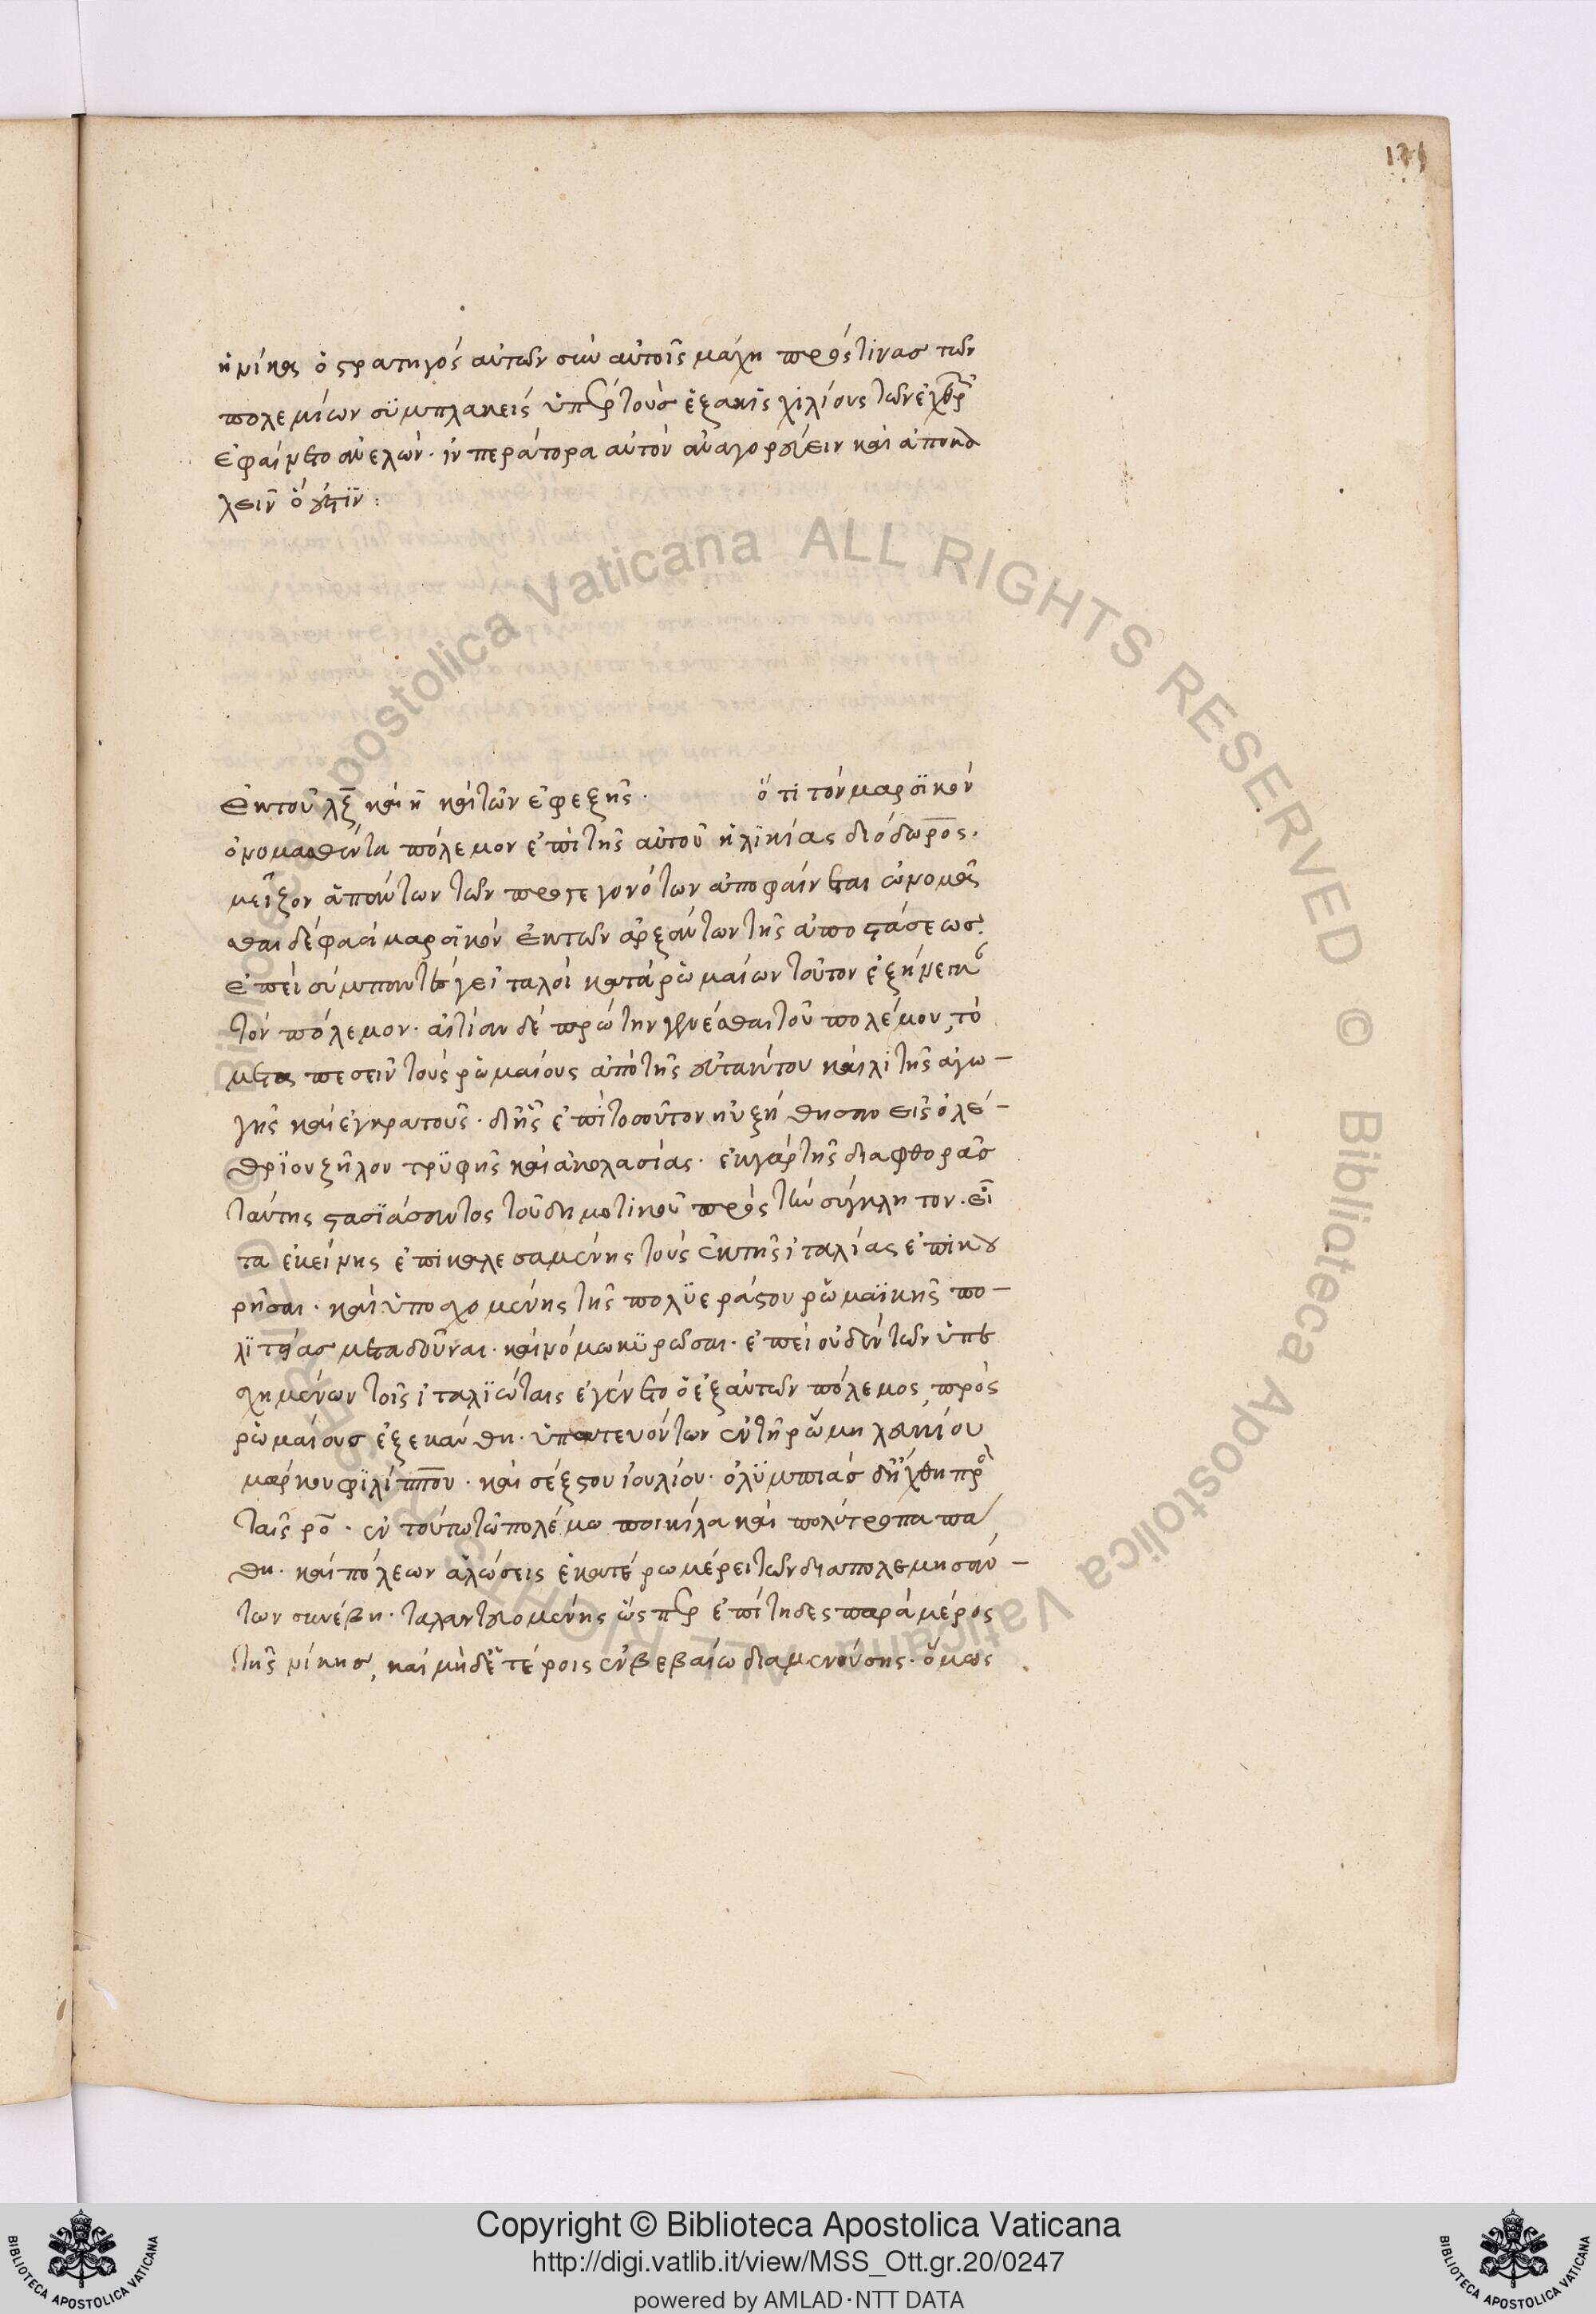 171
ἡνίκα ὁ στρατηγός αὐτῶν σὺν αὐτοῖς μάχη πρός τινας τῶν
πολεμίων συμπλακείς ὑπὲρ τοὺς ἑξακισχιλίους τῶν ἐχθρῶν
ἐφαίνετο ἀνελών. ἰνπεράτορα αὐτόν ἀναγορεύειν καὶ ἀποκα
λεῖν ὅ ἐστιν:
Ἐκ τοῦ λζ καὶ η καὶ τῶν ἐφεξῆς. ὅτι τόν μαρσικόν
ὀνομασθέντα πόλεμον ἐπὶ τῆς αὐτοῦ ἡλικίας διόδωρος.
μεῖζον ἁπάντων τῶν προγεγονότων ἀποφαίνεται ὠνομᾶς
θαι δέ φασι μαρσικόν ἐκ τῶν ἀρξάντων τῆς ἀποστάσεως.
ἐπεὶ σύμπαντές γε ἰταλοί κατά ῥωμαίων τοῦτον ἐξήνεγκαν
τόν πόλεμον. αἰτίαν δέ πρώτην γενέσθαι τοῦ πολέμου, τό
μεταπεσεῖν τούς ῥωμαίους ἀπό τῆς εὐτάκτου καὶ λιτῆς ἀγω-
γῆς καὶ ἐγκρατοῦς. δι' ἧς ἐπὶ τοσοῦτον ηὐξήθησαν εἰς ὀλέ-
θριον ζῆλον τρυφῆς καὶ ἀκολασίας. ἐκ γάρ τῆς διαφθορᾶς
ταύτης στασιάσαντος τοῦ δημοτικοῦ πρός τήν σύγκλητον. εἶ
τα ἐκείνης ἐπικαλεσαμένης τούς ἐκ τῆς ἰταλίας ἐπικου
ρῆσαι. καὶ ὑποσχομένης τῆς πολυεράστου ῥωμαϊκῆς πο-
λιτείας μεταδοῦναι. καὶ νόμω κυρῶσαι. ἐπεὶ οὐδέν τῶν ὑπε
σχημένων τοῖς ἰταλιώταις ἐγένετο ὁ ἐξ αὐτῶν πόλεμος, πρός
ῥωμαίους ἐξεκαύθη. ὑπατευόντων ἐν τῇ ῥώμη λευκίου
μάρκου φιλίππου. καὶ σέξστου ἰουλίου. ὀλυμπιάς δ' ἤχθη πρὸς
ταῖς ρο. ἐν τούτω τῶ πολέμω ποικίλα καὶ πολύτροπα πά
θη. καὶ πόλεων ἁλώσεις ἑκατέρω μέρει τῶν διαπολεμησάν-
των συνέβη. ταλαντευομένης ὥσπερ ἐπίτηδες παρά μέρος
τῆς νίκης, καὶ μὴδετέροις ἐν βεβαίω διαμενούσης. ὅμως
Copyright © Biblioteca Apostolica Vaticana
http://digi.vatlib.it/view/MSS_Ott.gr.20/0247
powered by AMLAD·NTT DATA
BIBLIOTECA APOSTOLICA VATICANA
BIBLIOTECA APOSTOLICA VATICANA
© Biblioteca Apostolica Vaticana ALL RIGHTS RESERVED © Biblioteca Apostolica Vaticana ALL RIGHTS RESERVED